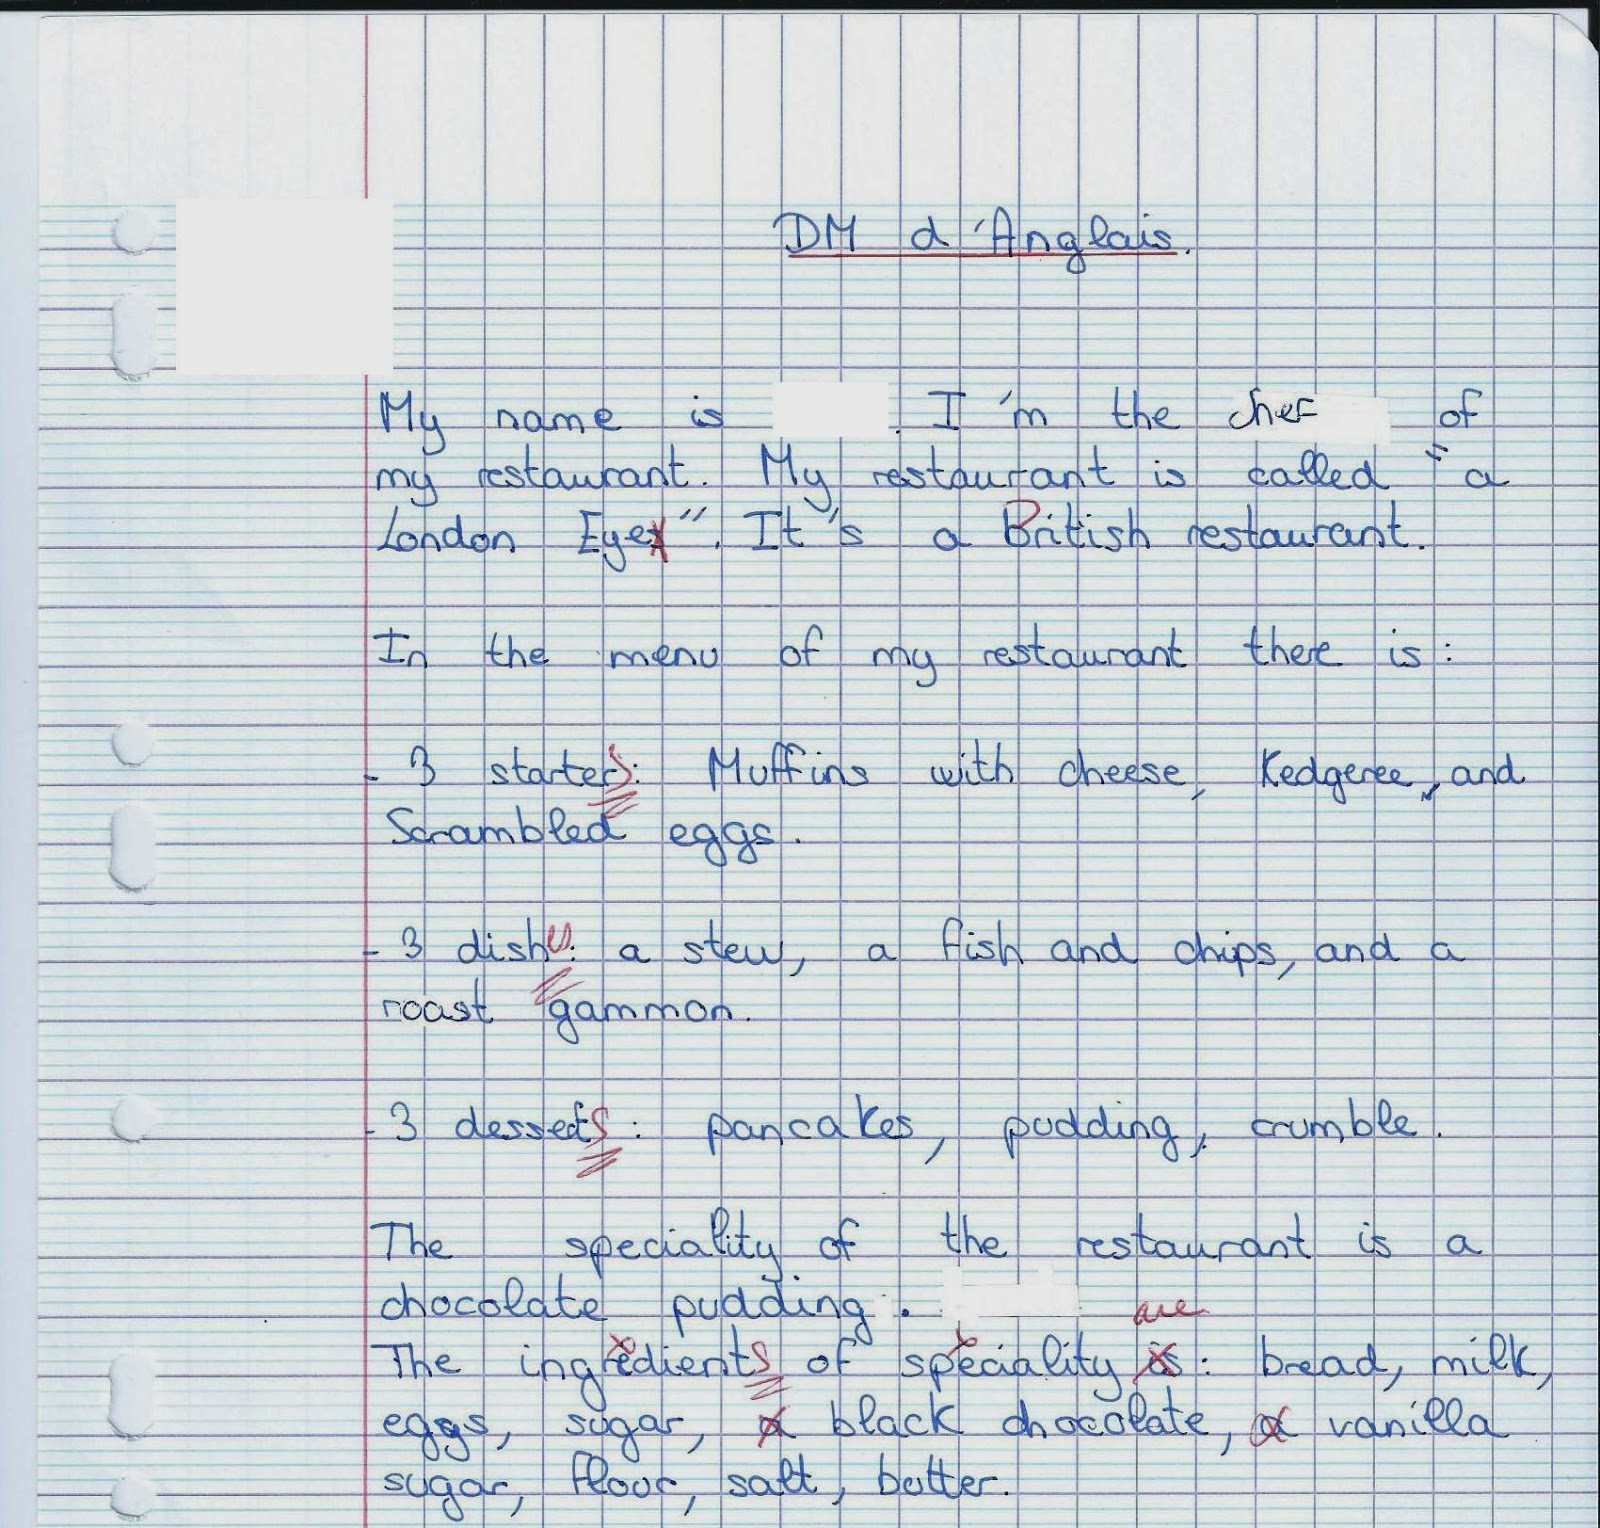 DM d'Anglais.
My name is . I'm the chef of
my restaurant. My restaurant is called "a
London Eye". It's a British restaurant.
In the menu of my restaurant there is:
- 3 starters: Muffins with cheese, Kedgeree, and
Scrambled eggs.
- 3 dishes: a stew, a fish and chips, and a
roast gammon.
- 3 desserts: pancakes, pudding, crumble.
The speciality of the restaurant is a
chocolate pudding.
are
The ingredients of speciality is: bread, milk,
eggs, sugar, a black chocolate, a vanilla
sugar, flour, salt, butter.